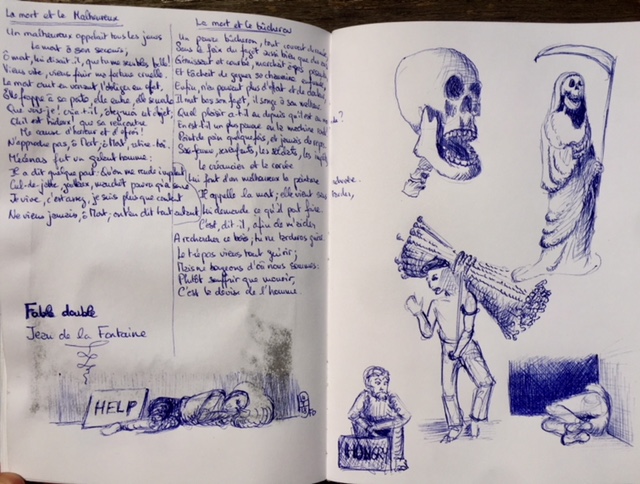 La mort et le Malheureux
Un malheureux appelait tous les jours
La mort à son secours;
Ô mort, lui disait-il, que tu me sembles belle!
Viens vite, viens finir ma fortune cruelle.
La mort crut en venant l'obliger en effet,
Elle frappe à sa porte, elle entre, elle se montre
Que vois-je! cria-t-il, ôtez-moi cet objet;
Qu'il est hideux! que sa rencontre
Me cause d'horreur et d'effroi!
N'approche pas, ô Mort, ô Mort, retire-toi.
Mécénas fut un galant homme:
Il a dit quelque part: Qu'on me rende impotent
Cul-de-jatte, goutteux, manchot, pourvu qu'en somme
Je vive, c'est assez, je suis plus que content
Ne viens jamais, ô Mort, on t'en dit tout autant.
La mort et le bûcheron
Un pauvre bûcheron, tout couvert de ramée
Sous le faix du fagot aussi bien que des ans
Gémissant et courbé, marchait à pas pesants
Et tâchait de gagner sa chaumine enfumée
Enfin, n'en pouvant plus d'effort et de douleur
Il met bas son fagot, il songe à son malheur
Quel plaisir a-t-il eu depuis qu'il est au monde?
En est-il un plus pauvre en la machine ronde
Point de pain quelquefois, et jamais de repos
Sa femme, ses enfants, les soldats, les impôts
Le créancier et la corvée
Lui font d'un malheureux la peinture achevée.
Il appelle la mort; elle vient sans tarder,
Lui demande ce qu'il faut faire.
C'est, dit-il, afin de m'aider
A recharger ce bois; tu ne tarderas guère
Le trépas vient tout guérir;
Mais ne bougeons d'où nous sommes:
Plutôt souffrir que mourir,
C'est la devise de l'homme.
Fable double
Jean de la Fontaine
HELP
HUNGRY